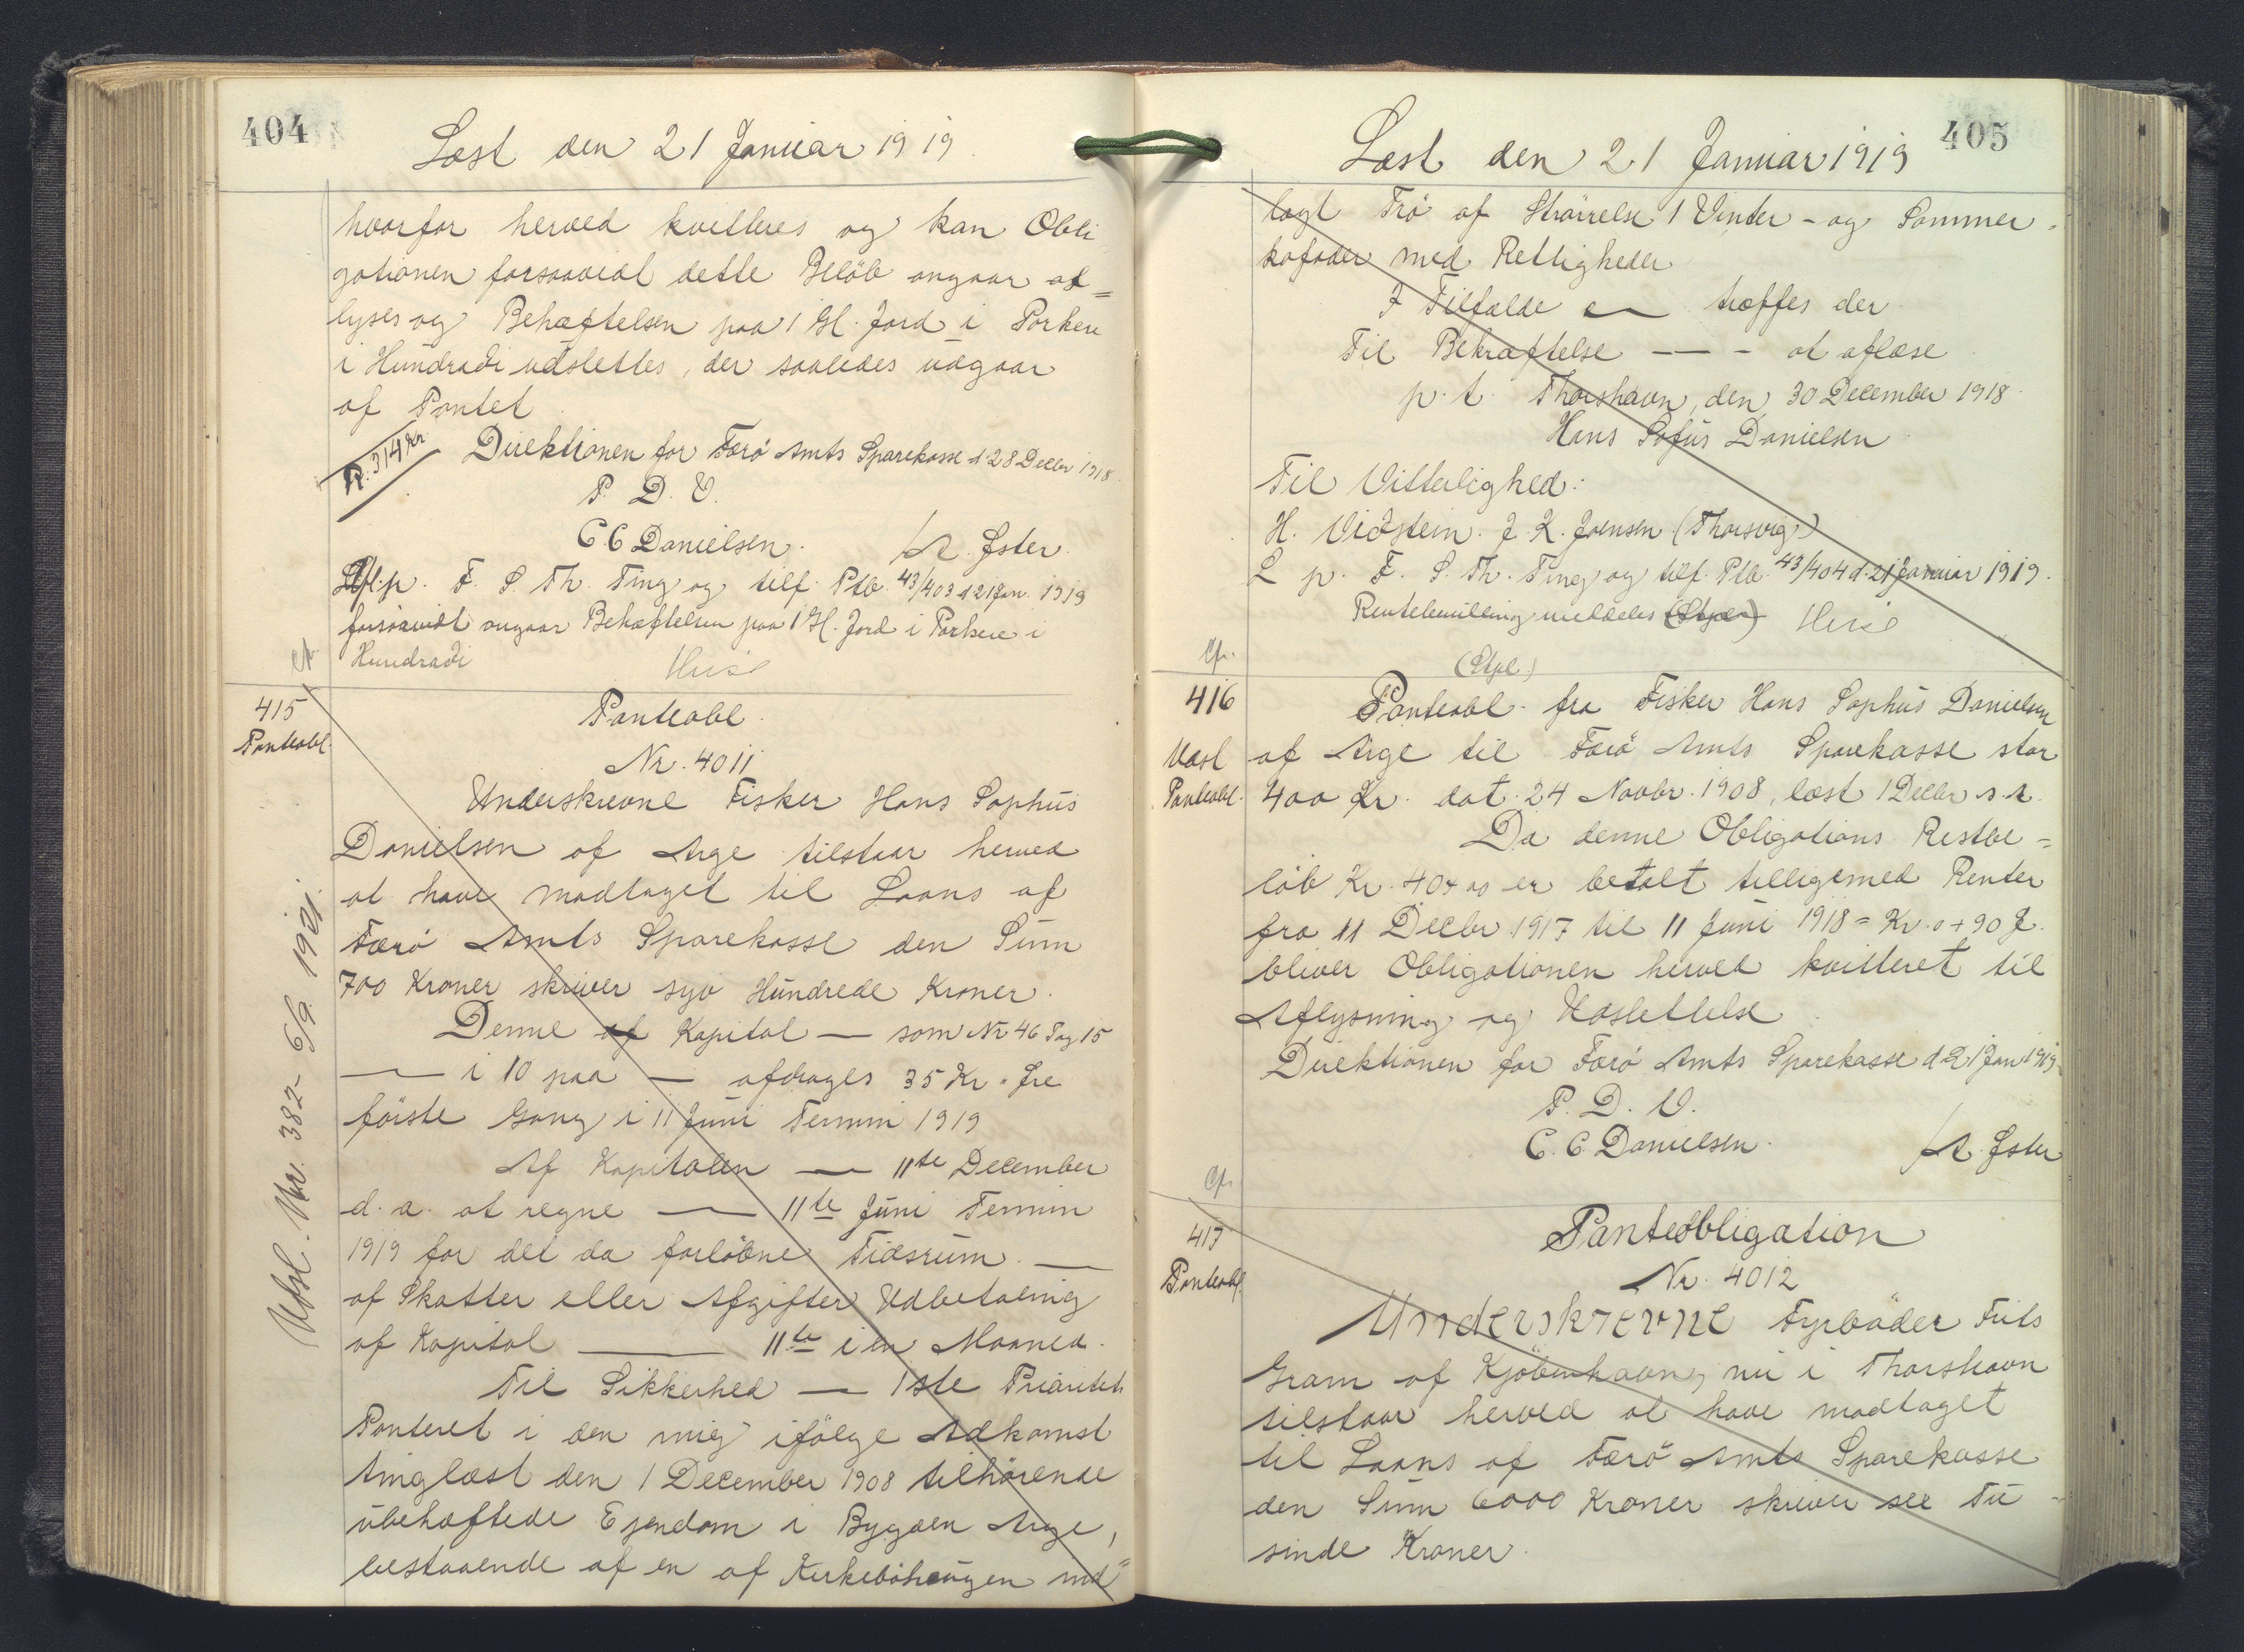 404
Læst den 21 Januar 1919.
hvorfor herved kvitteres og kan Obli
gationen forsaavidt dette Beløb angaar af=
lyses og Behæftelsen paa 1 Gl. Jord i Porkere
i Hundradi udslettes, der saaledes udgaar
af Pantet.
P. 314 Kr.
Direktionen for Færö Amts Sparekasse d 28 Decbr 1918.
P. D. V.
C. C Danielsen.
Afl. p. F. S. Th. Ting og tilf. Ptb. 43/403 d 21 Jan. 1919
forsaavidt angaar Behæftelsen paa 1 Gl. Jord i Porkere i
Hundradi
Cfr.
415
Panteobl.
Panteobl.
Nr. 4011
Underskrevne Fisker Hans Sophus
Danielsen af Arge tilstaar herved
at have modtaget til Laans af
Færö Amts Sparekasse den Sum
700 Kroner skriver syv Hundrede Kroner.
Denne af Kapital — som Nr 46 Pag 15
— i 10 paa — afdrages 35 Kr. " Øre
første Gang i 11 Juni Termin 1919
Af Kapitalen — 11te December
d. a. at regne — 11te Juni Termin
1919 for det da forløbne Tidsrum. —
af Skatter eller Afgifter Udbetaling
af Kapital — 11te i en Maaned.
Til Sikkerhed — 1ste Prioritets
Panteret i den mig ifølge Adkomst
tinglæst den 1 December 1908 tilhørende
ubehæftede Ejendom i Bygden Arge,
bestaaende af en af Kirkebøhaugen ind=
Udsl. Nr. 382 - 6/9. 1921.
405
Læst den 21 Januar 1919
lagt Trö af Størrelse 1 Vinter- og Sommer=
kofoder med Rettigheder
I Tilfælde — træffes der
Til Bekræftelse — — - at aflæse
p. t. Thorshavn, den 30 December 1918.
Hans Sofus Danielsen
Til Vitterlighed:
H. Vidstein. J. K. Joensen (Thorsvig)
L p. F. S. Th. Ting og tilf. Ptb. 43/404 d. 21 Januar 1919.
Rentebevilling meddeles (Stpl.)
Cfr.
(Stpl.)
416
Udsl
Panteobl.
Panteobl. fra Fisker Hans Sophus Danielsen
af Arge til Færö Amts Sparekasse stor
400 Kr. dat. 24 Novbr. 1908, læst 1 Decbr s. A.
Da denne Obligations Restbe=
løb Kr. 40+00 er betalt tilligemed Renter
fra 11 Decbr 1917 til 11 Juni 1918 = Kr. 0+90 Ø.
bliver Obligationen herved kvitteret til
Aflysning og Udslettelse.
Direktionen for Færö Amts Sparekasse d 21 Jan 1919
P. D. V.
C. C Danielsen.
Cfr.
417
Panteobl.
Panteobligation
Nr. 4012
Underskrevne Fyrbøder Frits
Gram af Kjøbenhavn, nu i Thorshavn
tilstaar herved at have modtaget
til Laans af Færö Amts Sparekasse
den Sum 6000 Kroner skriver sex Tu=
sinde Kroner.